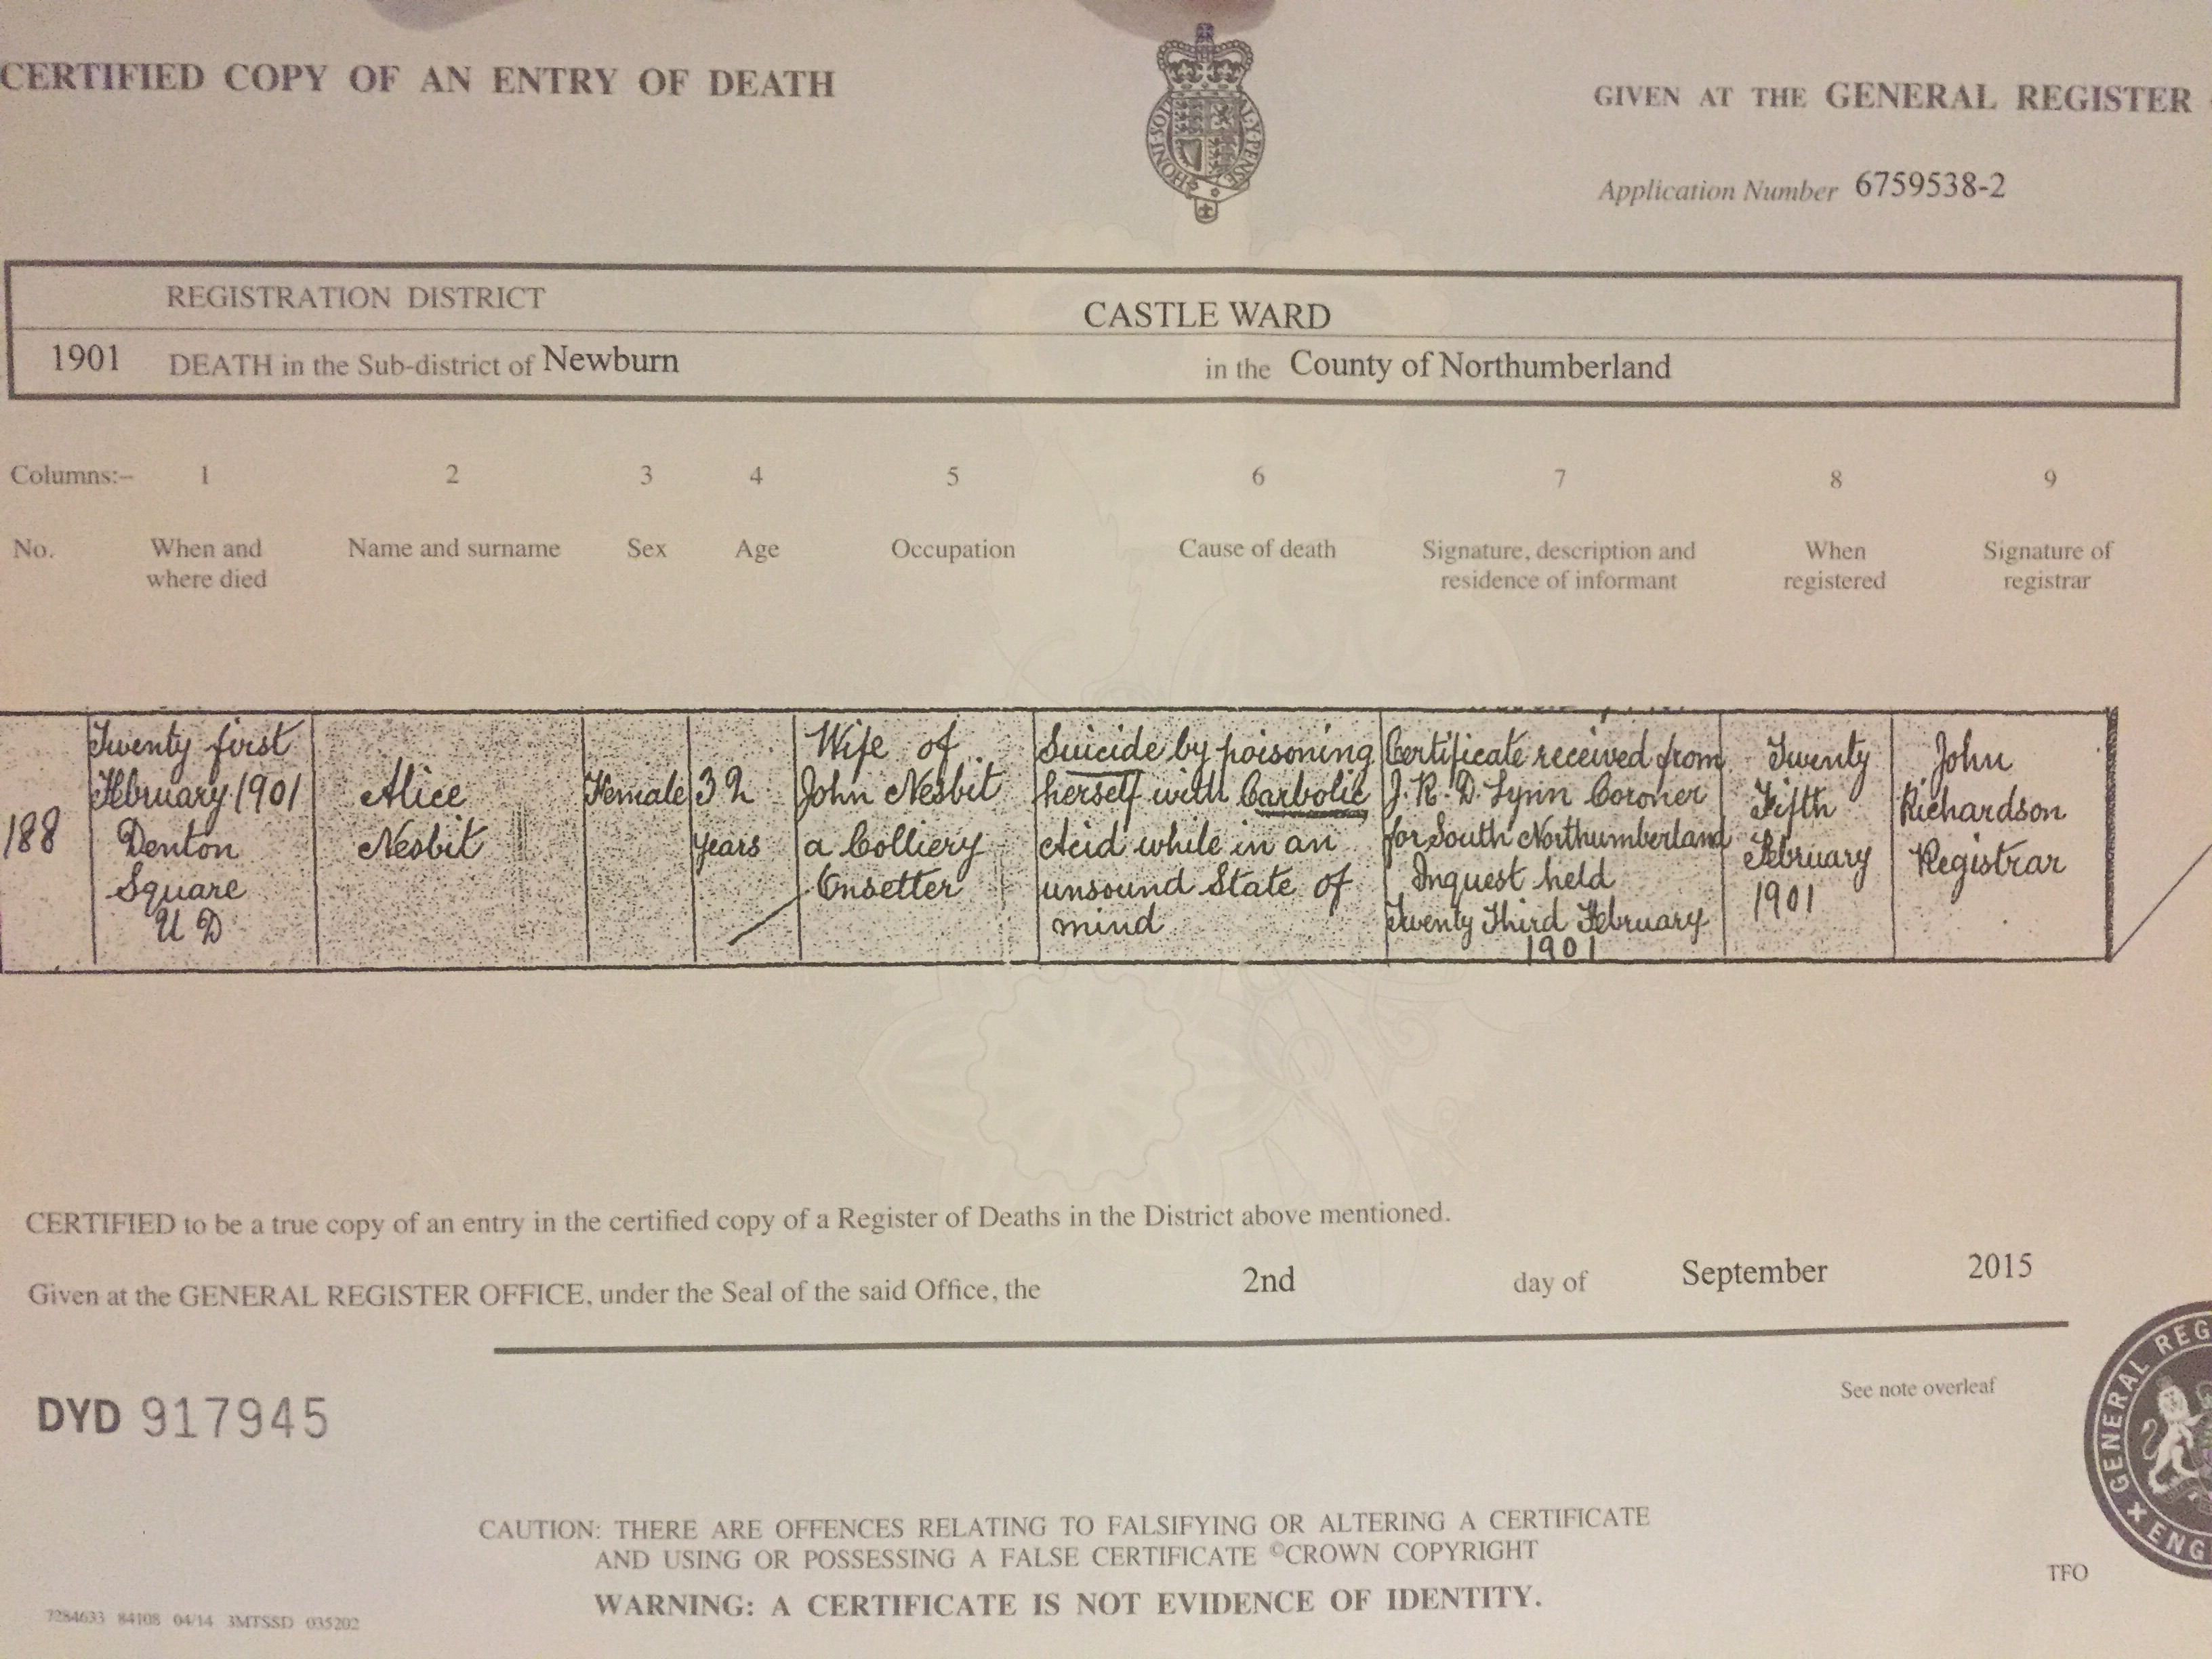 CERTIFIED COPY OF AN ENTRY OF DEATH
HONI·SOI
AL·Y·PENSE
GIVEN AT THE GENERAL REGISTER
Application Number 6759538-2
REGISTRATION DISTRICT CASTLE WARD
1901 DEATH in the Sub-district of Newburn in the County of Northumberland
Columns:– 1 2 3 4 5 6 7 8 9
No. When and where died Name and surname Sex Age Occupation Cause of death Signature, description and residence of informant When registered Signature of registrar
188
Twenty first
February 1901
Denton
Square
U D
Alice
Nesbit
Female
32
years
Wife of
John Nesbit
a Colliery
Onsetter
Suicide by poisoning
herself with Carbolic
Acid while in an
unsound State of
mind
Certificate received from
J. R. D. Lynn Coroner
for South Northumberland
Inquest held
Twenty Third February
1901
Twenty
Fifth
February
1901
John
Richardson
Registrar
CERTIFIED to be a true copy of an entry in the certified copy of a Register of Deaths in the District above mentioned.
Given at the GENERAL REGISTER OFFICE, under the Seal of the said Office, the 2nd day of September 2015
DYD 917945
See note overleaf
GENERAL REG
ENG
CAUTION: THERE ARE OFFENCES RELATING TO FALSIFYING OR ALTERING A CERTIFICATE
AND USING OR POSSESSING A FALSE CERTIFICATE ©CROWN COPYRIGHT
WARNING: A CERTIFICATE IS NOT EVIDENCE OF IDENTITY.
TFO
7284633 84108 04/14 3MTSSD 035202